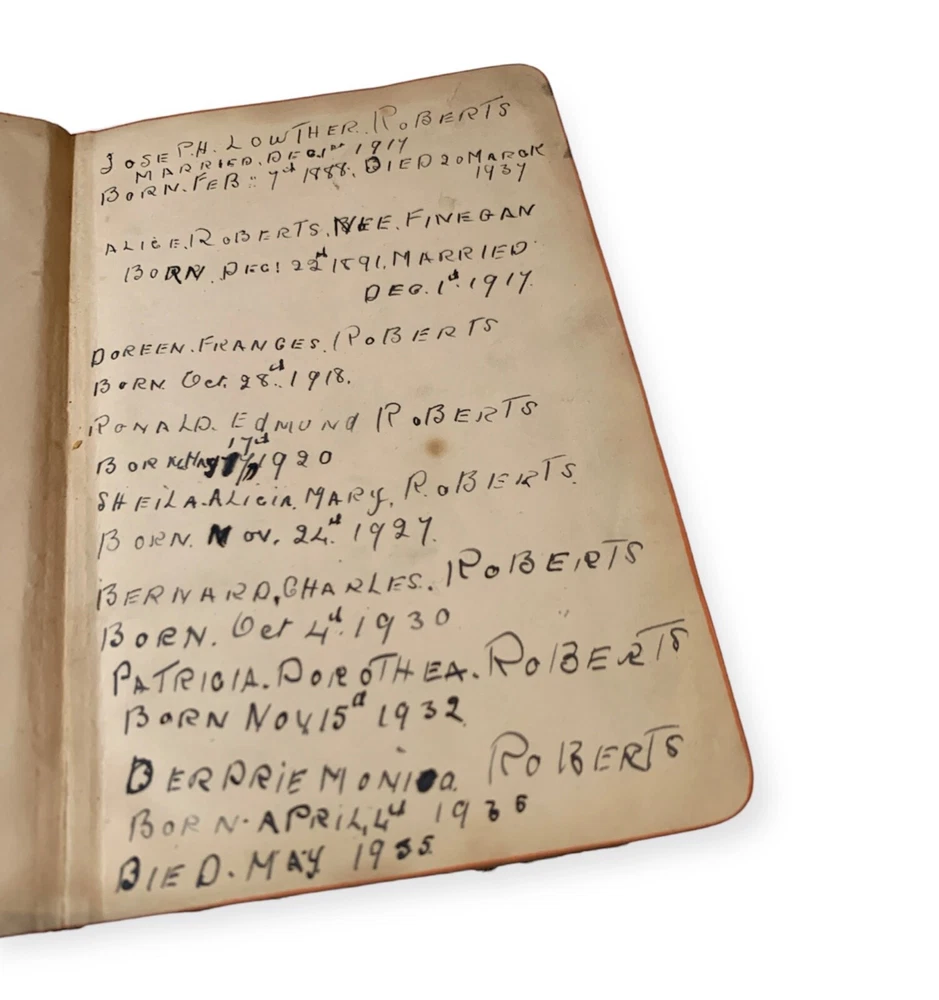 JOSEPH. LOWTHER. ROBERTS
MARRIED. DEC. 1st 1917
BORN. FEB: 7d 1888. DIED 20 MARCH
1937
ALICE. ROBERTS. NEE. FINEGAN
BORN DEC: 22d 1891. MARRIED
DEC. 1d. 1917.
DOREEN. FRANCES. ROBERTS
BORN Oct. 28d. 1918.
RONALD. EdMUNd ROBERTS
17d
BORN 1920
SHEILA. ALICIA. MARY. ROBERTS.
BORN. NOV. 24d. 1927.
BERNARD, CHARLES. ROBERTS
BORN. Oct 4d. 1930
PATRICIA. DOROTHEA. ROBERTS
BORN NOV 15d 1932
DERDRIE MONICa ROBERTS
BORN. APRIL, 4d
DIED. MAY 1935